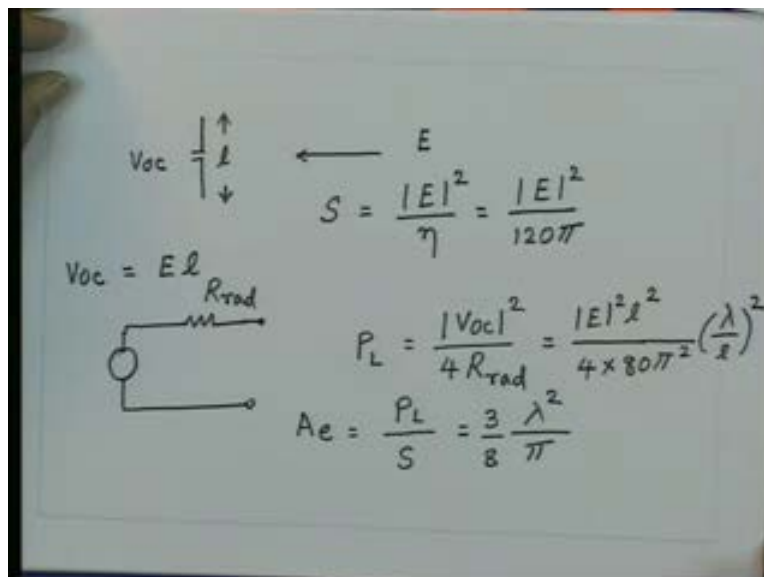 Voc l E
S = |E|² / η = |E|² / 120π
Voc = E l
Rrad
P_L = |Voc|² / 4 Rrad = |E|² l² / 4 × 80π² (λ / l)²
Ae = P_L / S = 3/8 λ² / π